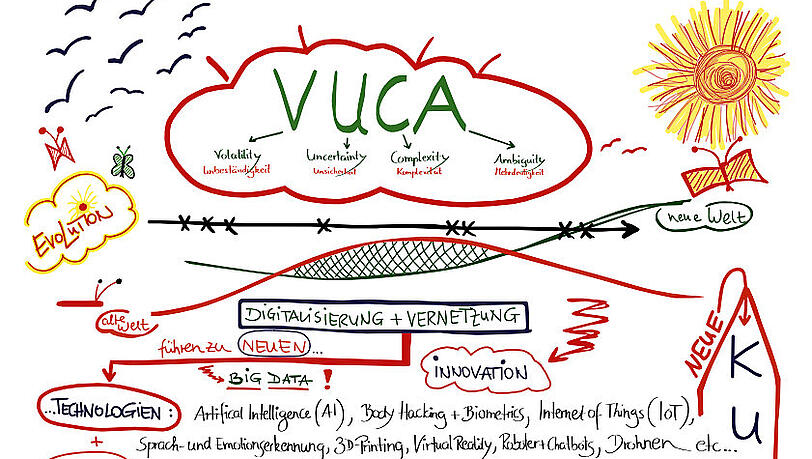 VUCA
Volatility Uncertainty Complexity Ambiguity
Unbeständigkeit Unsicherheit Komplexität Mehrdeutigkeit
EVOLUTION
neue Welt
alte Welt
DIGITALISIERUNG + VERNETZUNG
führen zu NEUEN...
BIG DATA!
INNOVATION
NEUE
KU
...TECHNOLOGIEN: Artifical Intelligence (AI), Body Hacking + Biometrics, Internet of Things (IoT),
+ Sprach- und Emotionserkennung, 3D-Printing, Virtual Reality, Roboter + Chatbots, Drohnen etc...